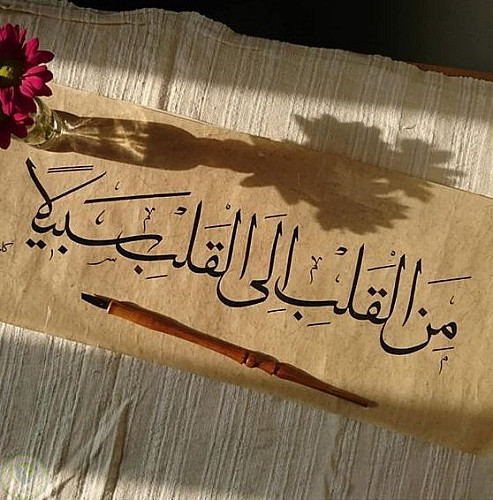 مِنَ القَلْبِ اِلَى القَلْبِ سَبِيلاً